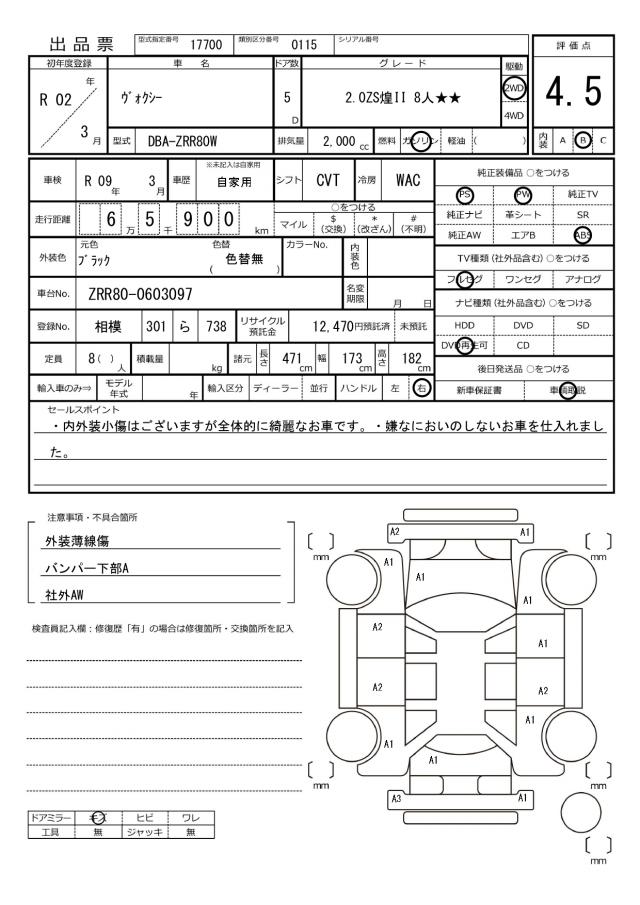 出品票 型式指定番号 17700 類別区分番号 0115 シリアル番号
評価点
4.5
内装 A B C
初年度登録 車名 ドア数 グレード 駆動
R 02 年 3 月 ヴォクシー 5 D 2.0ZS煌II 8人★★ 2WD 4WD
型式 DBA-ZRR80W 排気量 2,000 cc 燃料 ガソリン 軽油 ( )
車検 R 09 年 3 月 車歴 ※未記入は自家用 自家用 シフト CVT 冷房 WAC
走行距離 6 万 5 千 9 0 0 km
○をつける
マイル $ (交換) * (改ざん) # (不明)
外装色 元色 ブラック 色替 ( 色替無 ) カラーNo. 内装色
車台No. ZRR80-0603097 名変期限 月 日
登録No. 相模 301 ら 738 リサイクル預託金 12,470円預託済 未預託
定員 8 ( ) 人 積載量 kg 諸元 長さ 471 cm 幅 173 cm 高さ 182 cm
輸入車のみ⇒ モデル年式 年 輸入区分 ディーラー 並行 ハンドル 左 右
純正装備品 ○をつける
PS PW 純正TV
純正ナビ 革シート SR
純正AW エアB ABS
TV種類 (社外品含む) ○をつける
フルセグ ワンセグ アナログ
ナビ種類 (社外品含む) ○をつける
HDD DVD SD
DVD再生可 CD
後日発送品 ○をつける
新車保証書 車輌取説
セールスポイント
・内外装小傷はございますが全体的に綺麗なお車です。・嫌なにおいのしないお車を仕入れまし
た。
注意事項・不具合箇所
外装薄線傷
バンパー下部A
社外AW
検査員記入欄：修復歴「有」の場合は修復箇所・交換箇所を記入
A2 A1
mm mm
A1
A1
A1
A2
A1
A2
A2
A1
A1
A1
mm mm
A3 A1
mm
ドアミラー キズ ヒビ ワレ
工具 無 ジャッキ 無